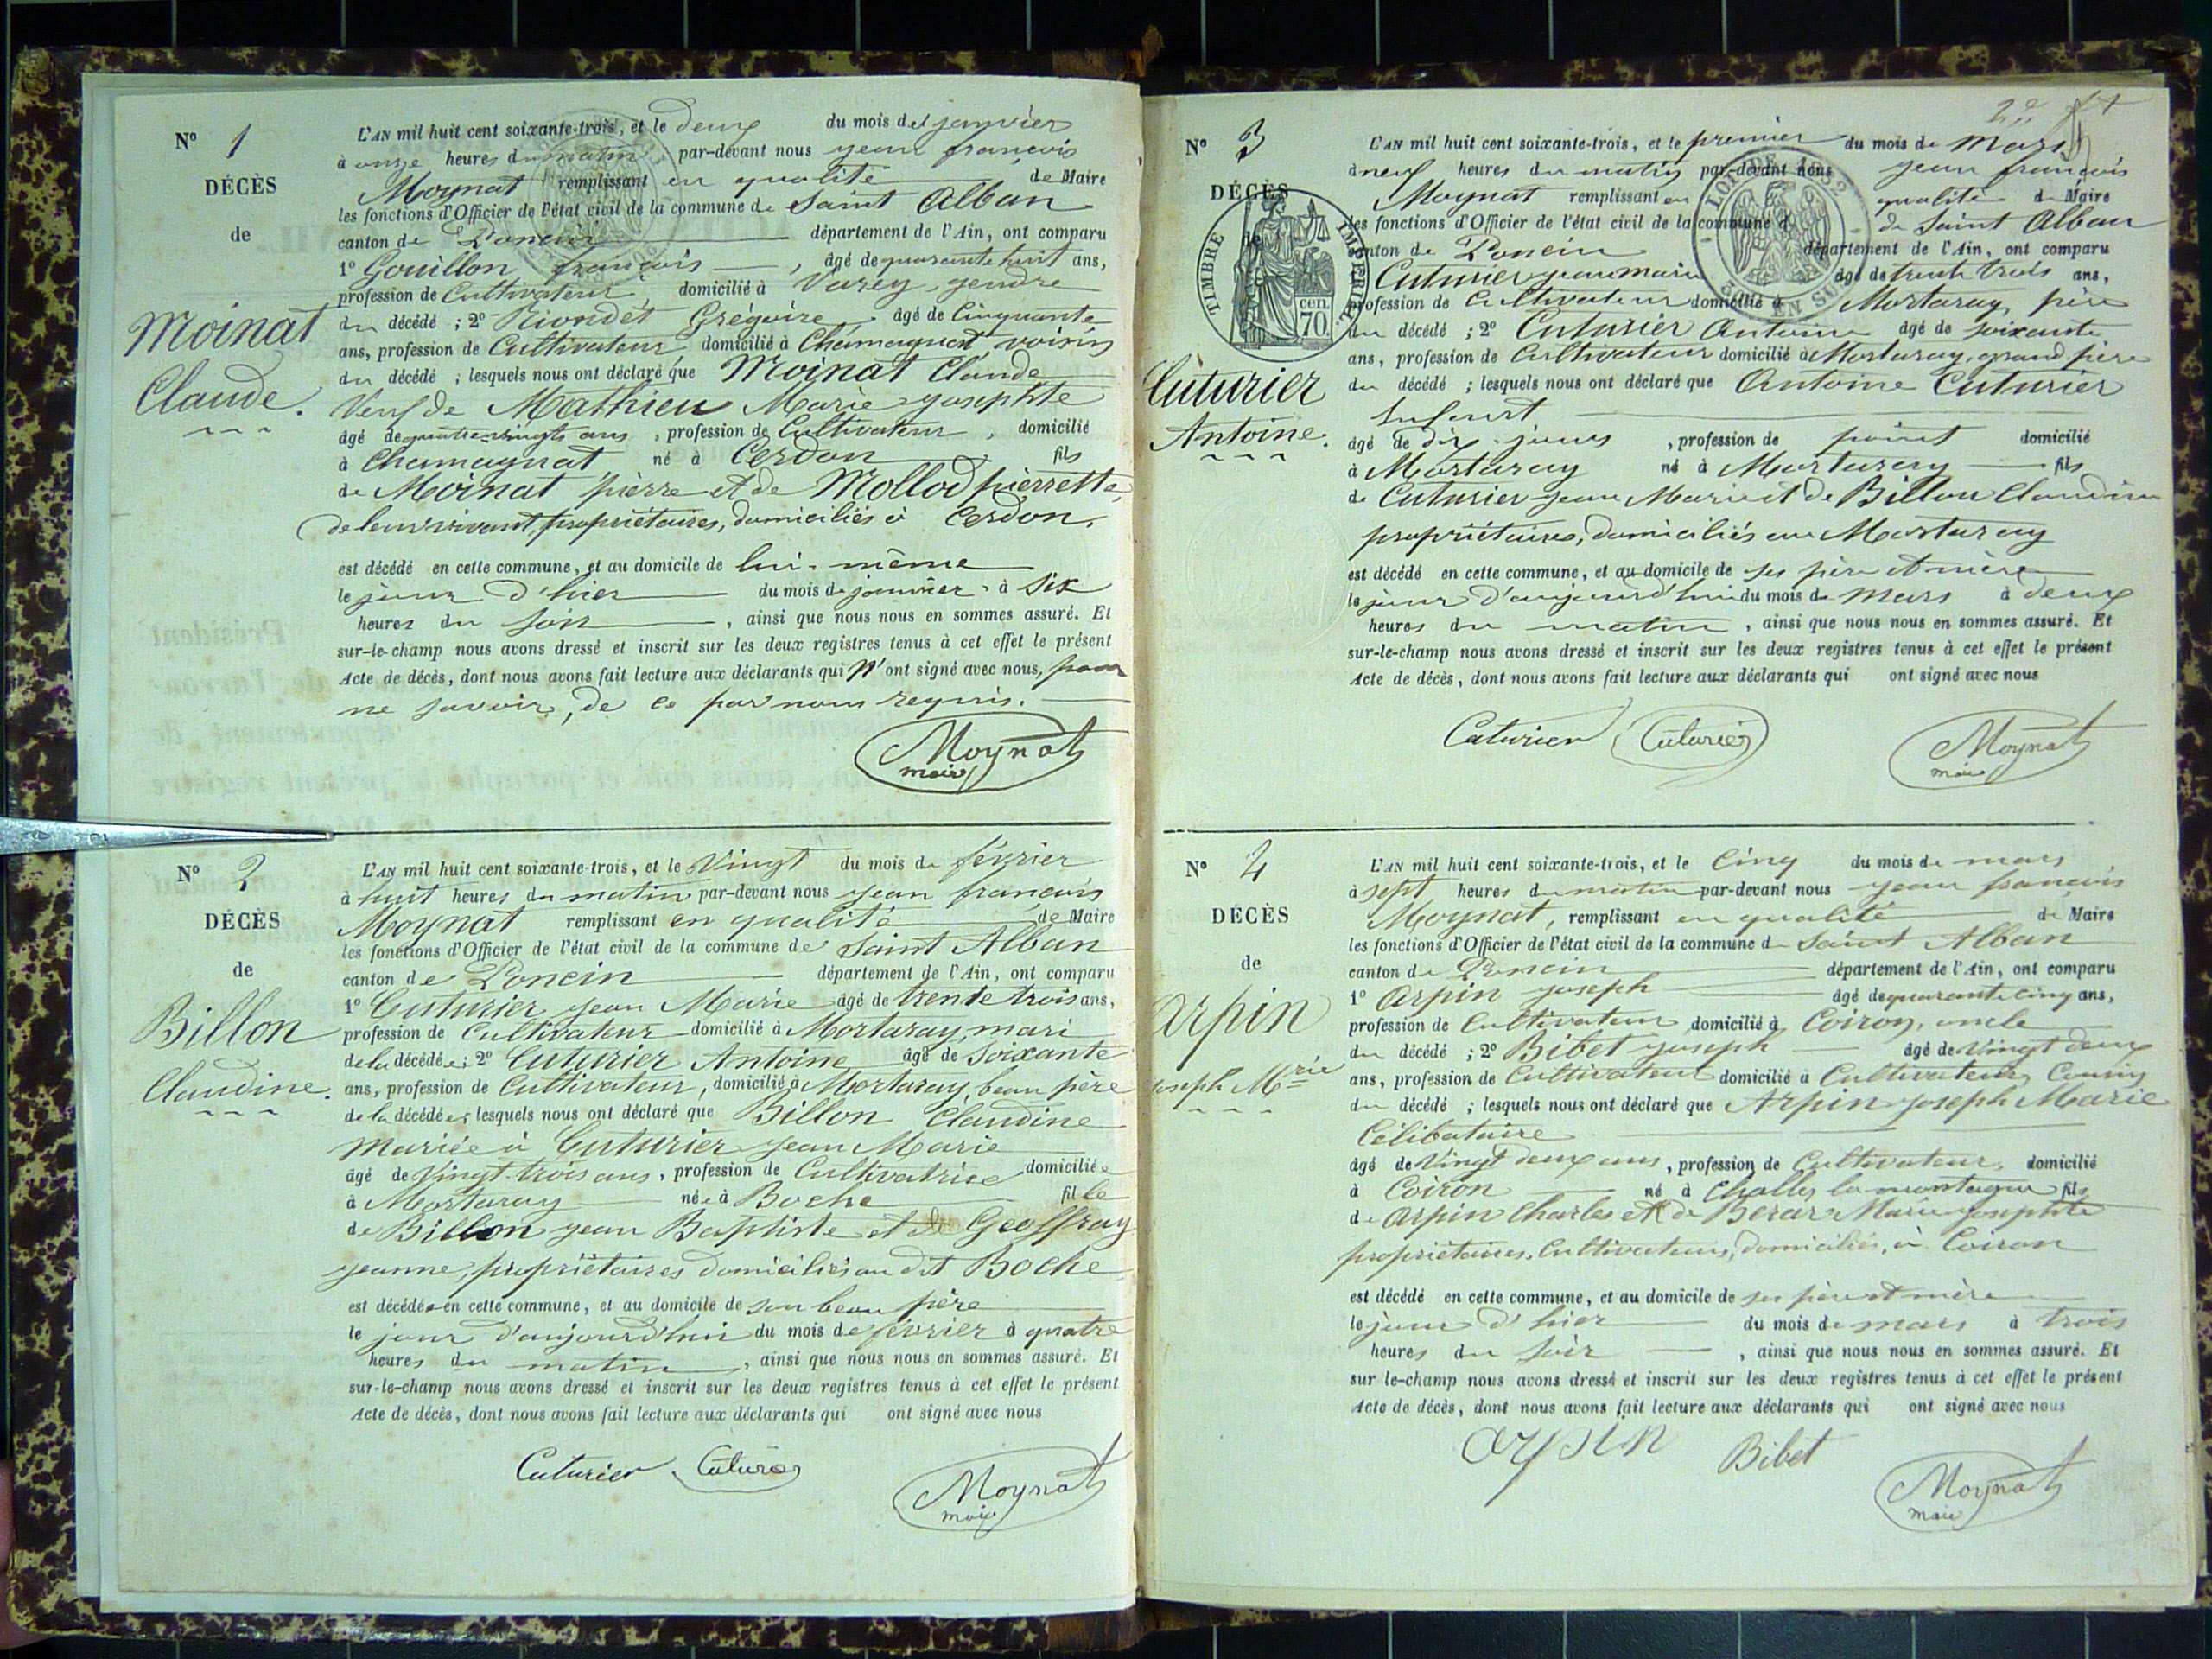 N° 1
DÉCÈS
de
Moinat
Claude.
L'AN mil huit cent soixante-trois, et le deux du mois de janvier
à onze heures du matin par-devant nous jean françois
Moynat remplissant en qualité de Maire
les fonctions d'Officier de l'état civil de la commune de Saint Alban
canton de Poncin département de l'Ain, ont comparu
1° Gouillon françois, âgé de quarante huit ans,
profession de Cultivateur domicilié à Varey, gendre
du décédé ; 2° Riondet Grégoire âgé de Cinquante
ans, profession de Cultivateur domicilié à Chamagnat voisin
du décédé ; lesquels nous ont déclaré que Moinat Claude
Veuf de Mathieu Marie josephte
âgé de quatre-vingts ans, profession de Cultivateur, domicilié
à Chamagnat né à Cerdon fils
de Moinat pierre et de Mollod pierrette
de leur vivant, propriétaires, domiciliés à Cerdon,
est décédé en cette commune, et au domicile de lui-même
le jour d'hier du mois de janvier à six
heures du soir, ainsi que nous nous en sommes assuré. Et
sur-le-champ nous avons dressé et inscrit sur les deux registres tenus à cet effet le présent
Acte de décès, dont nous avons fait lecture aux déclarants qui n'ont signé avec nous, pour
ne savoir, de ce par nous requis.
Moynat
maire
N° 2
DÉCÈS
de
Billon
Claudine.
L'AN mil huit cent soixante-trois, et le Vingt du mois de février
à huit heures du matin par-devant nous jean francois
Moynat remplissant en qualité de Maire
les fonctions d'Officier de l'état civil de la commune de Saint Alban
canton de Poncin département de l'Ain, ont comparu
1° Cuturier jean Marie âgé de trente trois ans,
profession de Cultivateur domicilié à Mortaray, mari
de la décédée ; 2° Cuturier Antoine âgé de Soixante
ans, profession de Cultivateur, domicilié à Mortaray, beau père
de la décédée ; lesquels nous ont déclaré que Billon Claudine
Mariée à Cuturier jean Marie
âgé de Vingt-trois ans, profession de Cultivatrice domiciliée
à Mortaray née à Boche fille
de Billon jean Baptiste et de Geoffray
jeanne, propriétaires domiciliés au dit Boche
est décédée en cette commune, et au domicile de son beau père
le jour d'aujourd'hui du mois de février à quatre
heures du matin, ainsi que nous nous en sommes assuré. Et
sur-le-champ nous avons dressé et inscrit sur les deux registres tenus à cet effet le présent
Acte de décès, dont nous avons fait lecture aux déclarants qui ont signé avec nous
Cuturier Cuturier
Moynat
maire
N° 3
DÉCÈS
de
TIMBRE IMPERIAL
70 cen
Cuturier
Antoine.
L'AN mil huit cent soixante-trois, et le premier du mois de Mars
à neuf heures du matin par-devant nous jean françois
Moynat remplissant en qualité de Maire
les fonctions d'Officier de l'état civil de la commune de Saint Alban
canton de Poncin département de l'Ain, ont comparu
Cuturier jean marie âgé de trente trois ans,
profession de Cultivateur domicilié à Mortaray, père
du décédé ; 2° Cuturier Antoine âgé de soixante
ans, profession de Cultivateur domicilié à Mortaray, grand père
du décédé ; lesquels nous ont déclaré que Antoine Cuturier
Enfant
âgé de dix jours, profession de point domicilié
à Mortaray né à Mortaray fils
de Cuturier jean Marie et de Billon Claudine
propriétaires, domiciliés au Mortaray
est décédé en cette commune, et au domicile de ses père et mère
le jour d'aujourd'hui du mois de mars à deux
heures du matin, ainsi que nous nous en sommes assuré. Et
sur-le-champ nous avons dressé et inscrit sur les deux registres tenus à cet effet le présent
Acte de décès, dont nous avons fait lecture aux déclarants qui ont signé avec nous
Cuturier Cuturier
Moynat
maire
N° 4
DÉCÈS
de
Arpin
joseph Mrie
L'AN mil huit cent soixante-trois, et le Cinq du mois de mars
à sept heures du matin par-devant nous jean francois
Moynat, remplissant en qualité de Maire
les fonctions d'Officier de l'état civil de la commune de Saint Alban
canton de Poncin département de l'Ain, ont comparu
1° Arpin joseph âgé de quarante cinq ans,
profession de Cultivateur domicilié à Coiron, oncle
du décédé ; 2° Bibet joseph âgé de Vingt deux
ans, profession de Cultivateur domicilié à Cultivateur, Cousin
du décédé ; lesquels nous ont déclaré que Arpin joseph Marie
Célibataire
âgé de Vingt deux ans, profession de Cultivateur, domicilié
à Coiron né à Challes la montagne fils
de Arpin Charles et de Berar Marie josephte
propriétaires, Cultivateurs, domiciliés, à Coiron
est décédé en cette commune, et au domicile de ses père et mère
le jour d'hier du mois de mars à trois
heures du soir, ainsi que nous nous en sommes assuré. Et
sur le-champ nous avons dressé et inscrit sur les deux registres tenus à cet effet le présent
Acte de décès, dont nous avons fait lecture aux déclarants qui ont signé avec nous
arpin Bibet
Moynat
maire